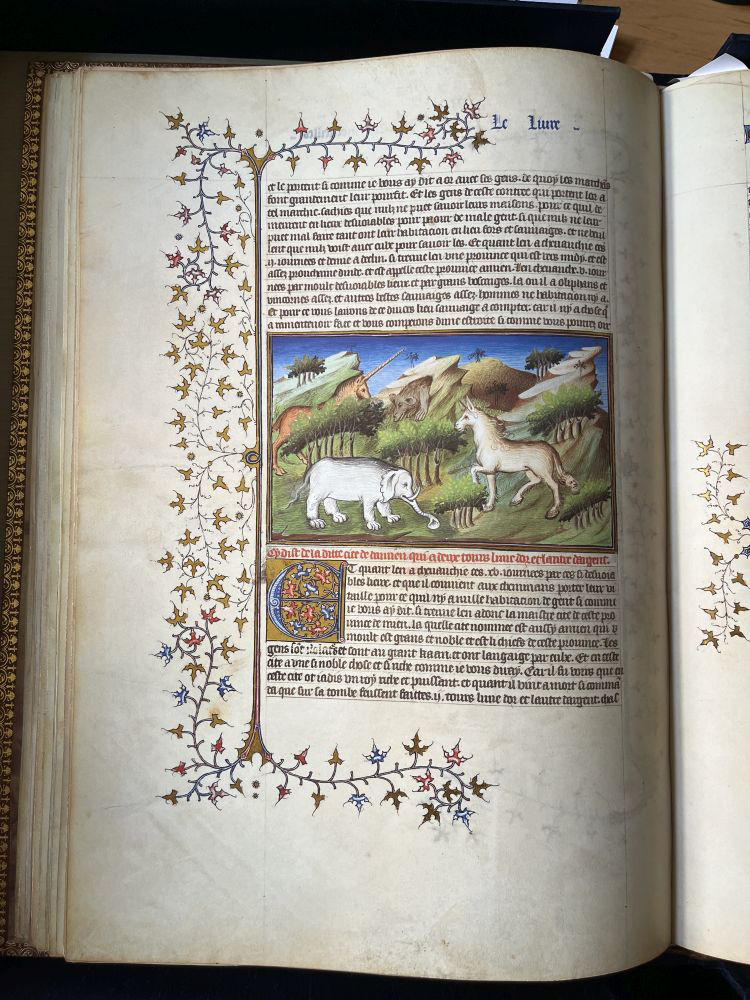 Le Liure
et le portent si comme ie vous ay dit a or auec ses gens. de quoy les marchãs
font grandement leur pourfit. Et les gens de ceste contree qui portent lor a
tel marchie. sachies que nulz ne puet sauoir leurs maisons. pour ce quil de
meurent en lieux desuoiables pour paour de male gent. si que nulz ne leur
puet mal faire tant ont leur habitacion en lieu fors et sauuaiges. et ne veul
lent que nulz voist auec eulz pour sauoir les. Et quant len a cheuauchie ces
.ij. iournees et demie a declin. si treuue len vne prouince qui est vers midy. et est
assez prouchaine dinde. et est appelle ceste prouince amien. len cheuauche .v. iour
nees par moult desuoiables lieux et par grans boscages. la ou il a oliphans et
vnicornes assez. et autres bestes sauuaiges assez. hommes ne habitacion ny a.
Et pour ce vous lairons de ce lieu sauuaige a compter. car il ny a chose q
a ramenteuoir face et vous compterons dune estoire si comme vous pourrez oir
Cy dist de la ditte cite de damien qui a deux tours lune dor et lautre dargent.
Et quant len a cheuauchie ces .xv. iournees par ces si desuoia
bles lieux. et que il conuient aux cheminans porter leur vi
taille pour ce quil ny a nulle habitacion de gent si comme
ie vous ay dit. si treuue len adonc la maistre cite de ceste pro
uince de mien. la quelle est nommee est aussy amien qui est
moult est grans et noble et est li chiefs de ceste prouince. Les
gens sõt ydolastres et sont au grant kaan. et ont langaige par eulx. Et en ceste
cite a vne si noble chose et si riche comme ie vous diray. Car il fu voirs que en
ceste cite ot iadis vn roy riche et puissant. et quant il vint a mort si comma
da que sur sa tombe feussent faictes .ij. tours lune dor et lautre dargent. chas